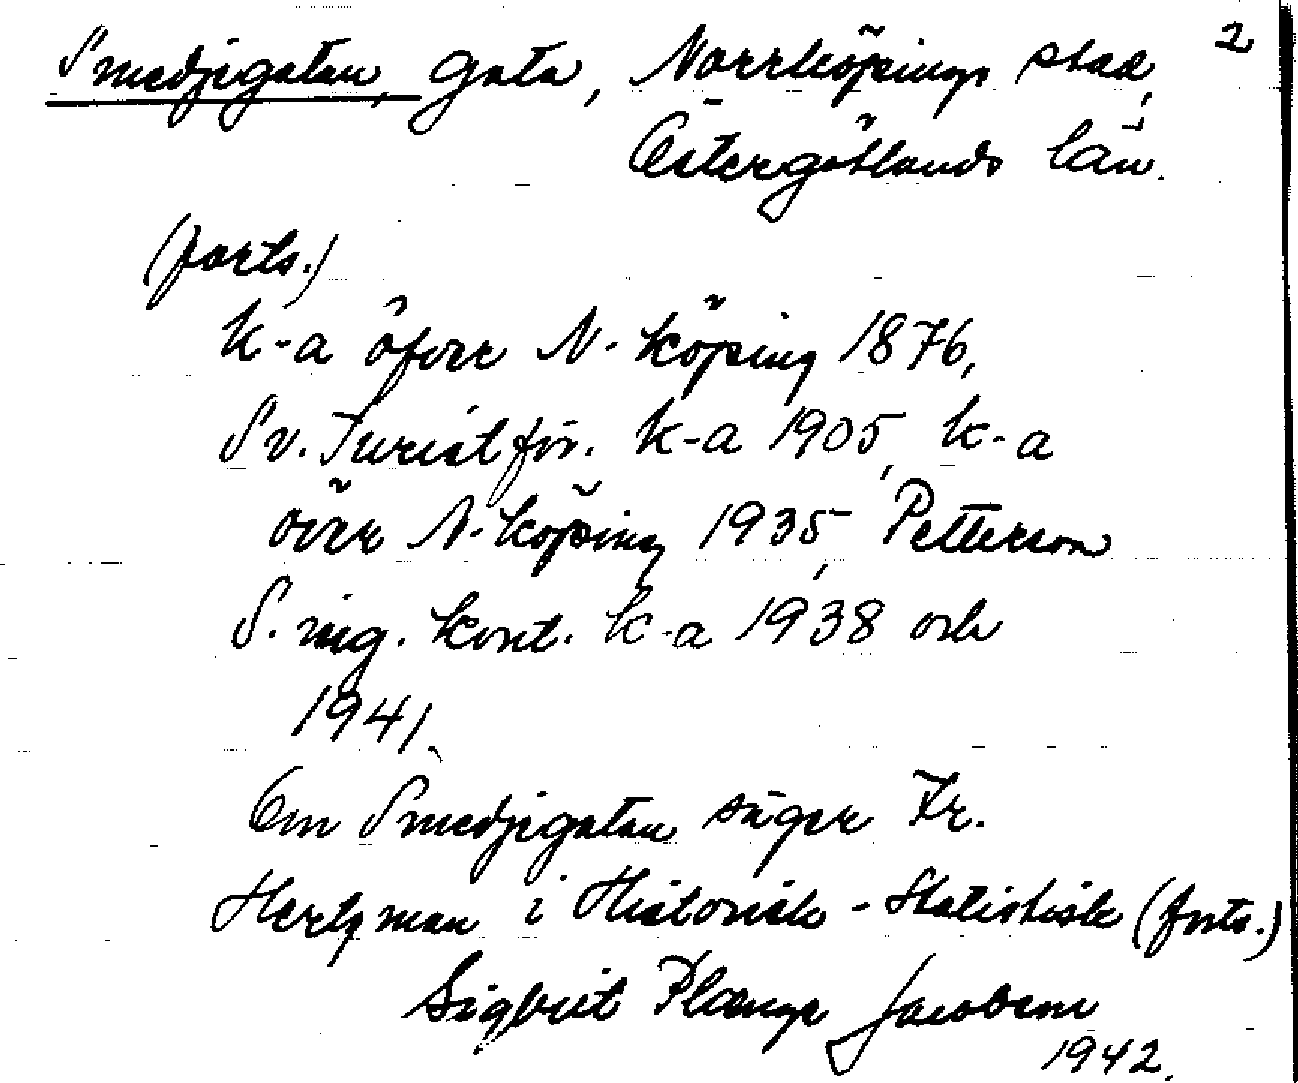 2
Smedjegatan, gata, Norrköpings stad,
Östergötlands län.
(forts.)
k-a öfver N-köping 1876,
Sv. Turistför. k-a 1905, k-a
över N-köping 1935, Petterson
S. ing. kont. k-a 1938 och
1941.
Om Smedjegatan säger Fr.
Hertzman i Historisk-Statistisk (forts.)
Sigbrit Plænge Jacobson
1942.